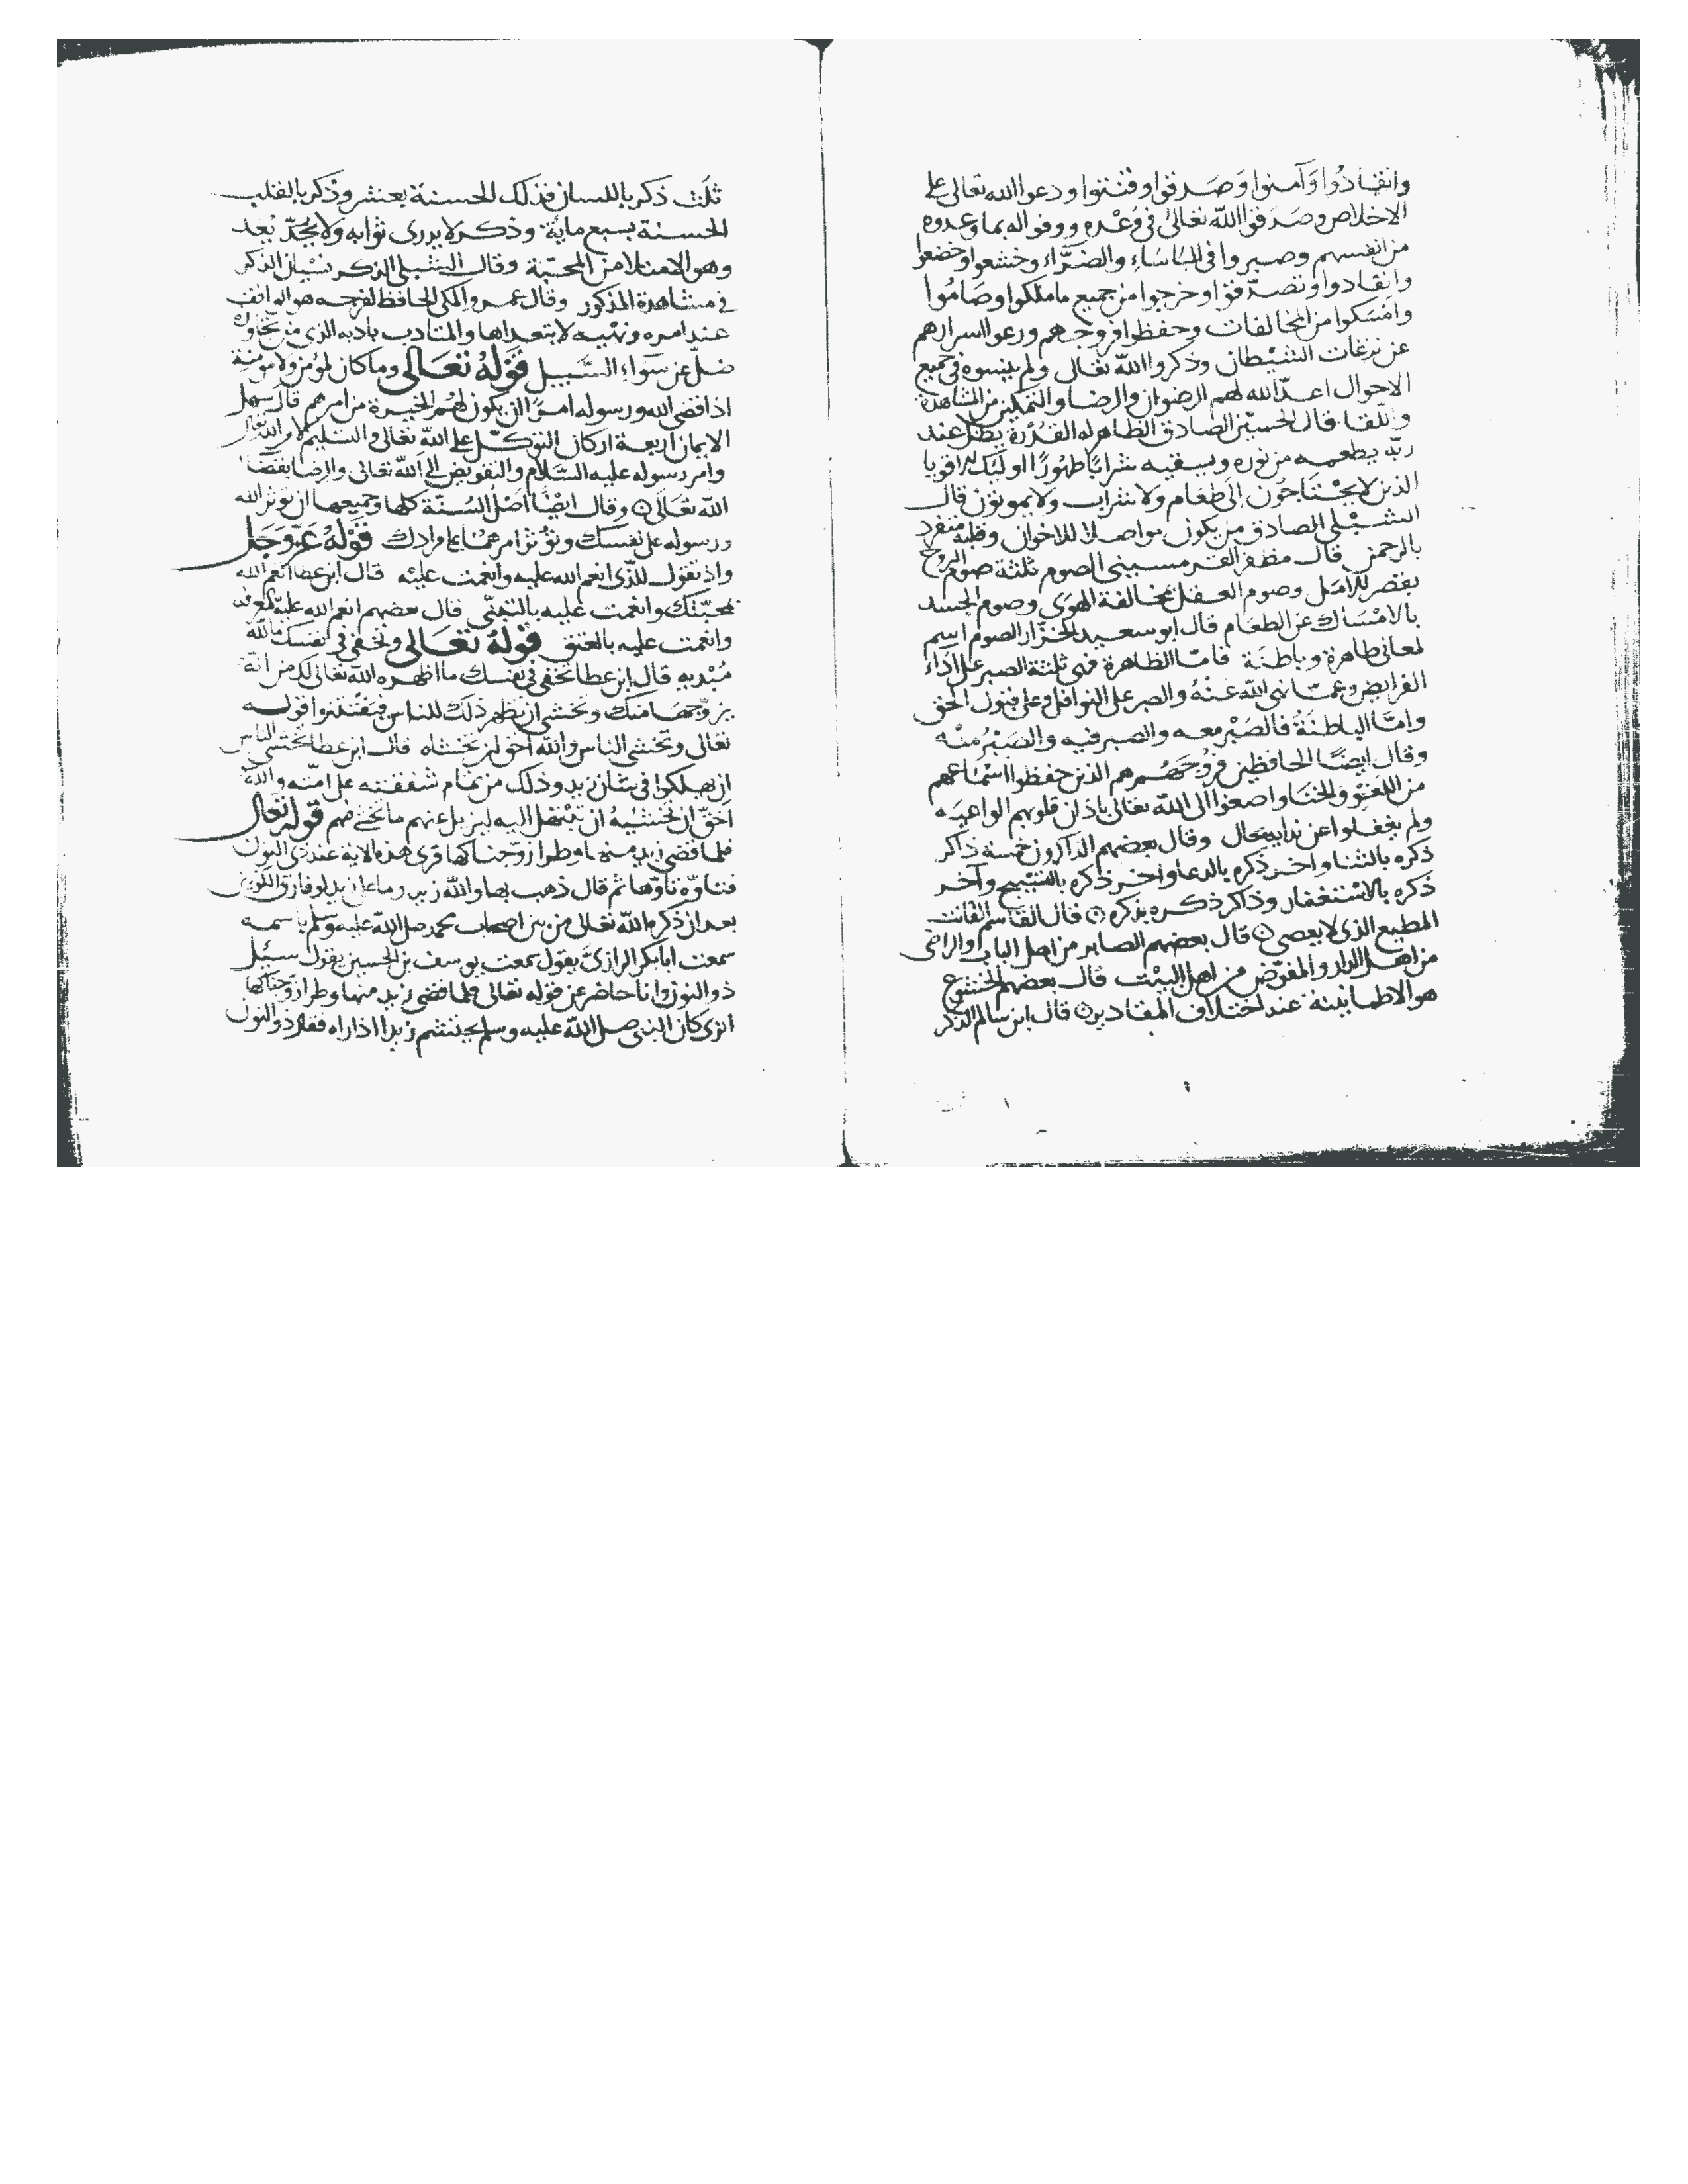 وانقادوا وَآمنوا وَصَدقوا وقنتوا ودعوا الله تعالى على
الاخلاص وصَدَقوا الله تعالىٰ في وَعْده ووفوا له بما وعدوه
من انفسهم وصبروا في البَاسَاءِ والضَرَّاء وخشعوا وخضعوا
وانقادوا وتصدّقوا وخرجوا من جميع ما ملكوا وصَامُوا
وامْسَكوا من المخالفات وحفظوا فروجهم ورعوا اسرارهم
عن نزغات الشيْطان وذكروا اللّه تعالى ولم ينسوه في جميع
الاحوال اعدّ الله لهم الرضوان والرضا والتمكين من المشاهدة
واللقا قال الحسين الصادق الظاهر له القُدْرة يظل عند
ربّه يطعمه من نوره ويسقيه شرابًا طهُورًا اوليك الاقويا
الذين لا يحْتَاجُون إلى طعَام ولا شراب ولا يموتون قال
الشبْلي الصادق من يكون مواصلا للاخوان وقلبه منفرد
بالرحمن قال مظفر القرمسيني الصوم ثلثة صوم الروح
بقصر الامَل وصوم العقل بمخالفة الهوَى وصوم الجسد
بالامْسَاك عن الطعَام قال ابو سعيد الخزّار الصوم اسم
لمعاني ظاهرة وباطنَة فامّا الظاهرة فهي ثلثة الصبر على اَدَاءِ
الفرايض وعمّا نهى اللّه عَنْهُ والصبر على النوافل وعلى قبول الحق
وامّا الباطنَةُ فالصَبْر معه والصبر فيه والصَبْرُ منْه
وقال ايضًا الحافظين فروُجَهُم هم الذين حفظوا اسْمَاعهم
من اللغو والخنَا واصغوا الى اللّه تعالى باذان قلوبهم الواعيَه
ولم يغفلوا عن ندايه بحال وقال بعضهم الذاكرون خمسة ذاكر
ذكره بالثنا واخر ذكره بالدعا واخر ذكره بالتسْبيح وآخر
ذكره بالاسْتغفار وذاكر ذكره بذكره ۞ قال القاسم القانت
المطيع الذي لا يعصي ۞ قال بعضهم الصابر من اهل الباب والراضي
من اهل الدار والمفوّض من اهل البيْت قال بعضهم الخشوع
هو الاطمانينة عند اختلاف المقادير ۞ قال ابن سالم الذكر
ثلَث ذكر باللسان فذلك الحسنة بعشر وذكر بالقلب
الحسنة بسبع ماية وذكر لا يدرى ثوابه ولا يُحَدّ بعد
وهو الامتلا من المحبّة وقال الشبلي الذكر نسْيان الذكر
في مشاهدة المذكور وقال عمرو المكي الحافظ لفرجه هو الواقف
عند امره ونهْيه لا يتعداها والمتادب بادبه الذي من تجاوزه
ضلّ عن سَواءِ السَّبيل قَوْلهُ تعَالى وما كان لمؤمن ولا مؤمنة
اذا قضى الله ورسوله امرًا ان يكون لهم الخيرة من امرهم قال سهل
الايمان اربعة اركان التوكّل على اللّه تعالى والتسليم لامر الله تعالى
وامر رسوله عليه السَّلام والتفويض الى اللّه تعالى والرضا بقضا
اللّه تعَالَى ۞ وقال ايضًا اصْل السُنّة كلها وجميعها ان توثر الله
ورسوله على نفسك وتوثر امرهما على مرادك قَوْلهُ عَزّوَجَل
واذ تقول للّذي انعم الله عليه وانعمت عليْه قال ابن عطا انعم الله
بمحبّتك وانعمت عليه بالتبنّي قال بعضهم انعم الله عليه بالمعرفة
وانعمت عليه بالعتق قوْلهُ تعَالى وتخفى في نفسك ما الله
مُبْديه قال ابن عطا تخفي في نفسك ما اظهره الله تعالى لك من انه
يزوّجهَا منك وتخشى ان يظهر ذلك للناس فيَفْتنوا قوله
تعالى وتخشى الناس واللّه احق ان تخشاه قال ابن عطا تخشى الناس
ان يهلكوا في شان زيد وذلك من تمام شفقته على امّته واللّه
اَحَقّ ان تخْشيهُ ان تبْتهل اليه ليزيل عنهم ما تخشى فيهم قوله تعالى
فلما قضى زيد منها وطرا زوّجناكها قرى هذه الاية عند ذي النون
فتاوّه تاوّها ثم قال ذهب بها والله زيد وما على زيد لو فارق الكونين
بعد ان ذكره الله تعالى من بين اصحاب محمد صلى اللّه عليه وسلم باسمه
سمعت ابا بكر الرازيّ يقول سمعت يوسف بن الحسين يقول سئل
ذو النون وانا حاضر عن قوله تعالى فلما قضى زيد منها وطرا زوجناكها
اترى كان النبي صلى الله عليه وسلم يحتشم زيدا اذا راه فقال ذو النون